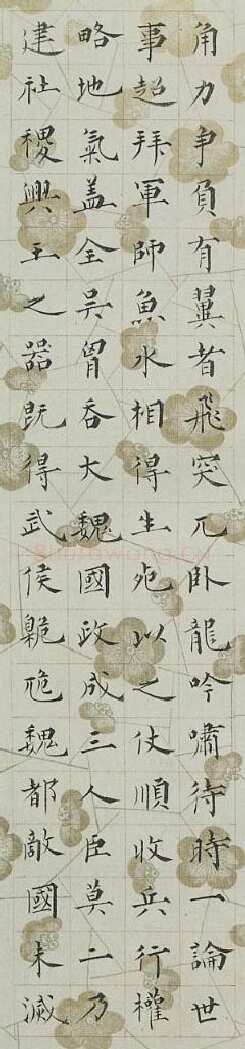 角力争負有翼者飛突兀卧龍吟嘯待時一論世
事超拜軍師魚水相得生死以之仗順收兵行權
略地氣盖全吴胷吞大魏國政成三人臣莫二乃
建社稷興王之器既得武侯臲卼魏都敵國未滅